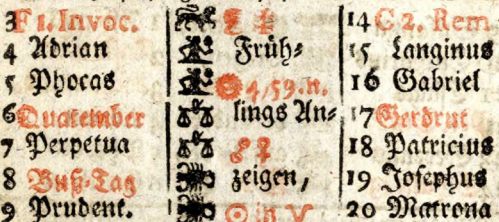 3 F 1. Invoc.
4 Adrian
5 Phocas
6 Quatember
7 Perpetua
8 Buß-Tag
9 Prudent.
♂ ☿
Früh-
4,59. n.
lings An-
♂ ☿
zeigen,
☉ in ♈
14 G 2. Rem.
15 Langinus
16 Gabriel
17 Gerdrut
18 Patricius
19 Josephus
20 Matrona